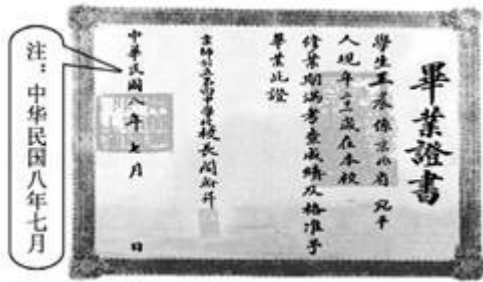 畢業證書
學生王 係京兆 宛平
人現年 歲在本校
修業期滿考查成績及格准予
畢業此證
京師公立 中學校校長
中華民國八年七月 日
注：中华民国八年七月